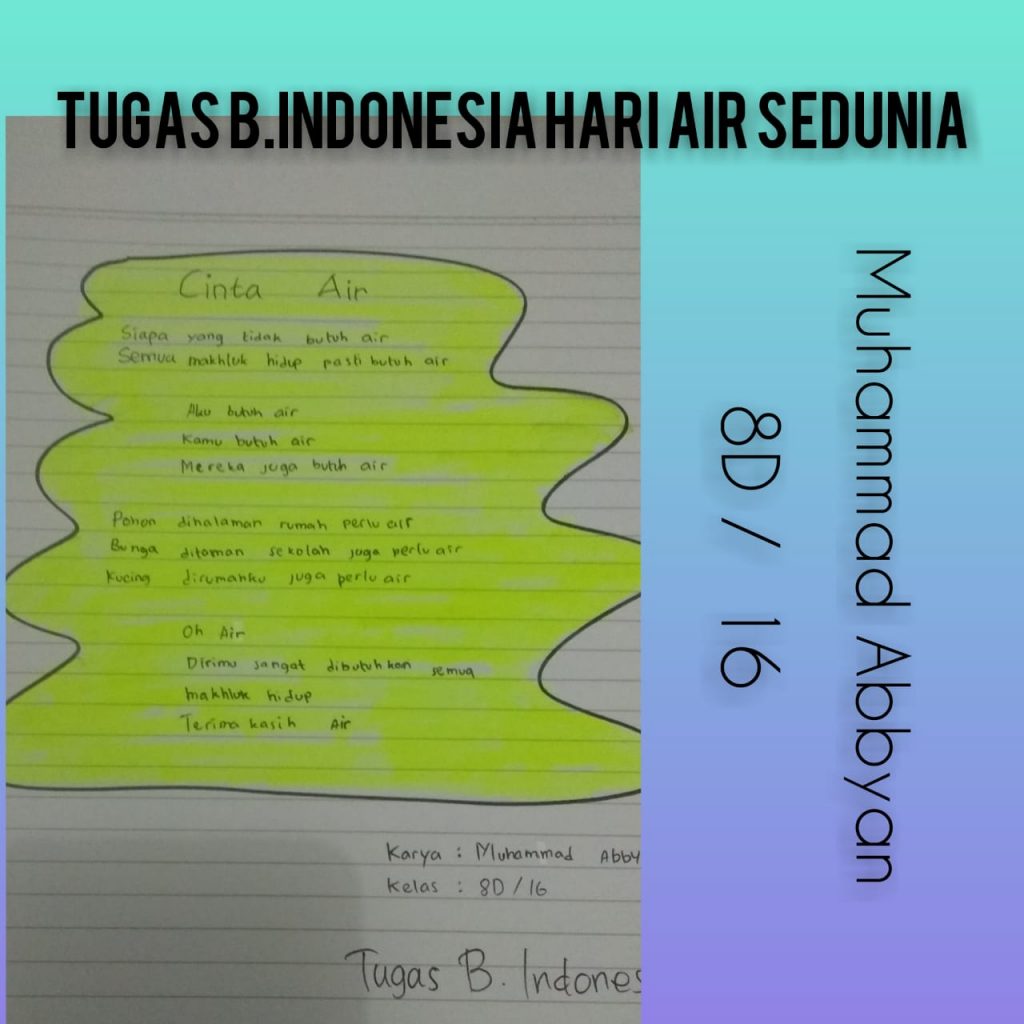 TUGAS B.INDONESIA HARI AIR SEDUNIA
Cinta Air
Siapa yang tidak butuh air
Semua makhluk hidup pasti butuh air
Aku butuh air
Kamu butuh air
Mereka juga butuh air
Pohon dihalaman rumah perlu air
Bunga ditaman sekolah juga perlu air
Kucing dirumahku juga perlu air
Oh Air
Dirimu sangat dibutuhkan semua
makhluk hidup
Terima kasih Air
Karya : Muhammad Abby
Kelas : 8D / 16
Tugas B. Indones
Muhammad Abbyan
8D / 16